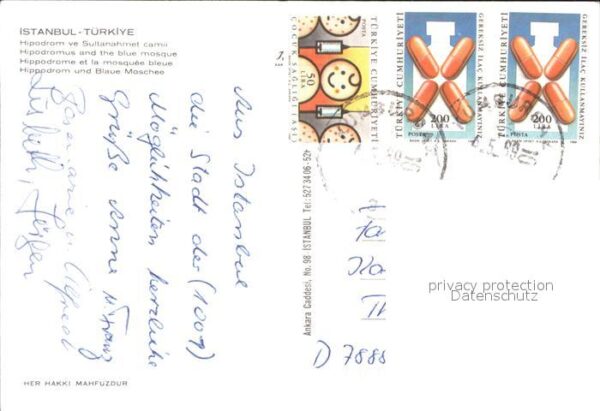 İSTANBUL - TÜRKİYE
Hipodrom ve Sultanahmet camii
Hipodromus and the blue mosque
Hippodrome et la mosquée bleue
Hippodrom und Blaue Moschee
Aus Istanbul
die Stadt der (1001)
Möglichkeiten herzliche
Grüße Anne u. Franz
HER HAKKI MAHFUZDUR
Ankara Caddesi, No. 98 İSTANBUL Tel: 527 34 06-52
ÇOCUK SAĞLIĞI
50
LİRA
POSTA
TÜRKİYE CUMHURİYETİ
TÜRKİYE CUMHURİYETİ
GEREKSİZ İLAÇ KULLANMAYINIZ
200
LİRA
POSTA
TÜRKİYE CUMHURİYETİ
GEREKSİZ İLAÇ KULLANMAYINIZ
200
LİRA
POSTA
Fa
D 7888
privacy protection
Datenschutz